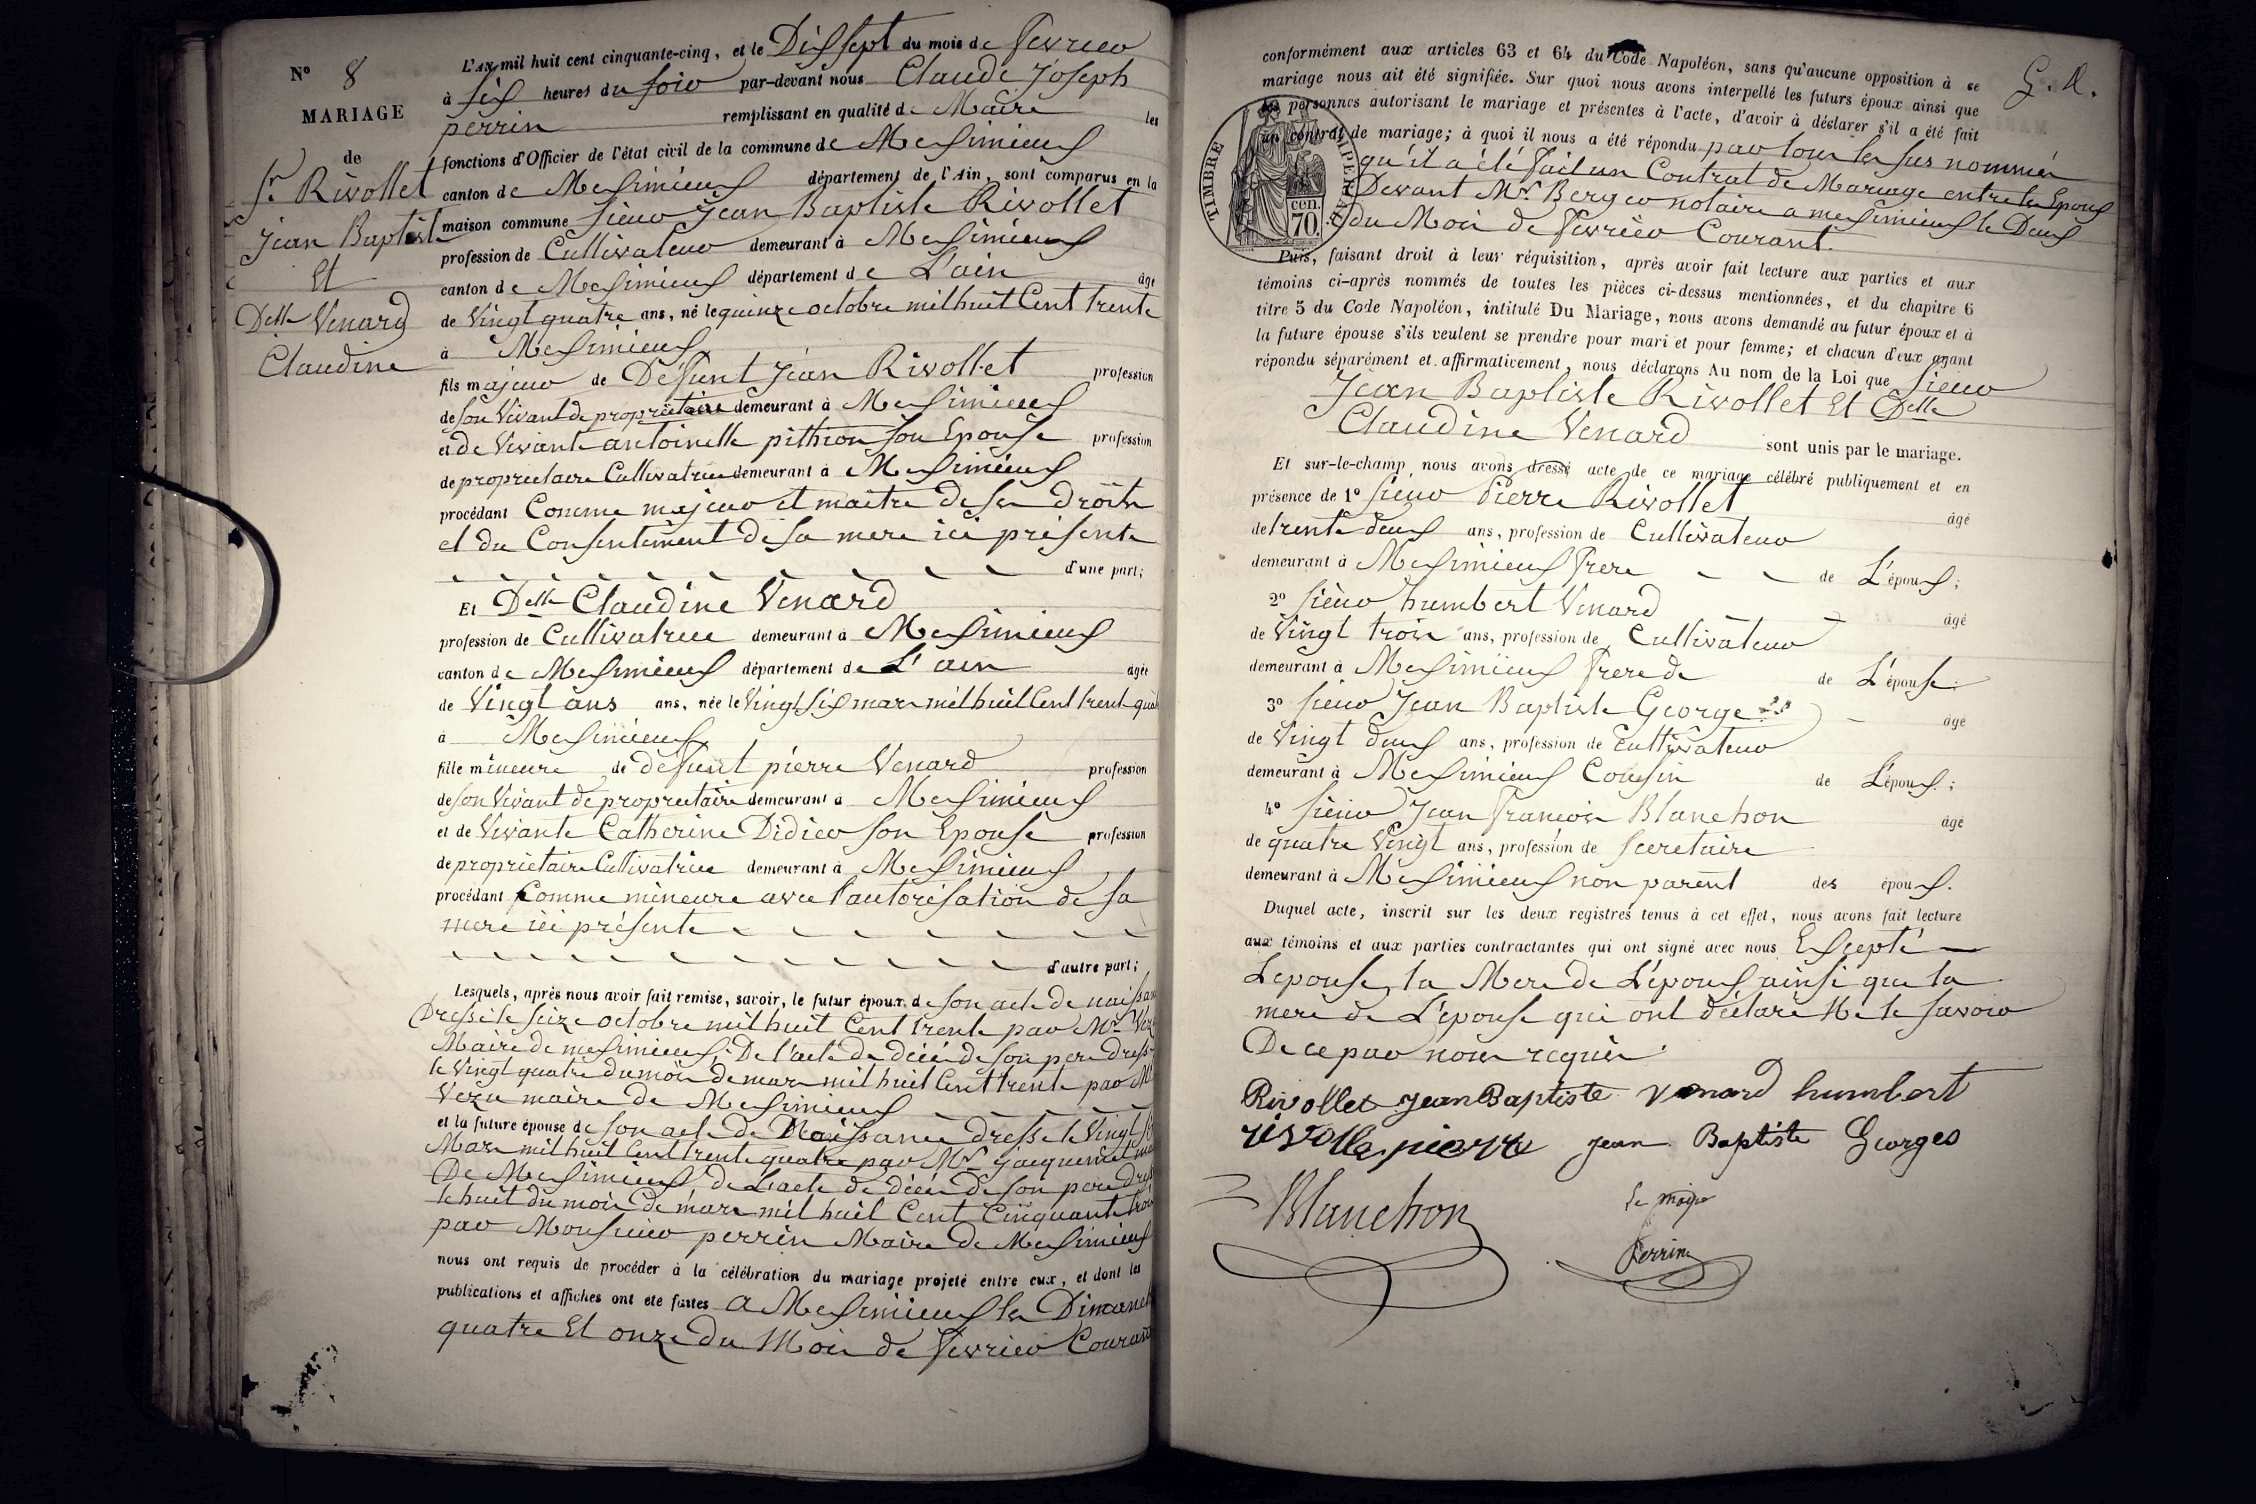 N° 8
MARIAGE
de
Sr Rivollet
Jean Baptiste
Et
Delle Venard
Claudine
L'AN mil huit cent cinquante-cinq, et le Dixsept du mois de fevrier
à six heures du soir par-devant nous Claude Joseph
perrin remplissant en qualité de Maire les
fonctions d'Officier de l'état civil de la commune de Meximieux
canton de Meximieux département de l'Ain, sont comparus en la
maison commune sieur Jean Baptiste Rivollet
profession de Cultivateur demeurant à Meximieux
canton de Meximieux département de L'ain âgé
de Vingt quatre ans, né le quinze octobre mil huit Cent trente
à Meximieux
fils majeur de Défunt Jean Rivollet profession
de son Vivant de propriétaire demeurant à Meximieux
et de Vivante antoinette pithion son Epouse profession
de proprietaire Cultivatrice demeurant à Meximieux
procédant Comme majeur et maitre de ses droits
et du Consentement de sa mere ici présente
d'une part;
Et Delle Claudine Venard
profession de Cultivatrice demeurant à Meximieux
canton de Meximieux département de L'ain âgée
de Vingt ans ans, née le Vingt six mars mil huit Cent trente quat
à Meximieux
fille mineure de défunt pierre Venard profession
de son Vivant de proprietaire demeurant à Meximieux
et de Vivante Catherine Didier son Epouse profession
de propriétaire Cultivatrice demeurant à Meximieux
procédant Comme mineure avec l'autorisation de sa
mere ici présente
d'autre part;
Lesquels, après nous avoir fait remise, savoir, le futur époux de son acte de naissan
Dressé le seize octobre mil huit Cent trente par Mr
Maire de meximieux; De l'acte de décès de son pere dress
le Vingt quatre du mois de mars mil huit Cent trente par Mr
Vezu maire de Meximieux
et la future épouse de son acte de Naissance dressé le Vingt
Mars mil huit Cent trente quatre par Mr jacquemet
De Meximieux, de L'acte de décès De son pere dres
le huit du mois de mars mil huit Cent Cinquante trois
par Monsieur perrin Maire de Meximieux
nous ont requis de procéder à la célébration du mariage projeté entre eux, et dont les
publications et affiches ont été faites a Meximieux les Dimanch
quatre Et onze du Mois de fevrier Courant
conformément aux articles 63 et 64 du Code Napoléon, sans qu'aucune opposition à ce
mariage nous ait été signifiée. Sur quoi nous avons interpellé les futurs époux ainsi que
les personnes autorisant le mariage et présentes à l'acte, d'avoir à déclarer s'il a été fait
un contrat de mariage; à quoi il nous a été répondu par tous les sus nommés
qu'il a été fait un Contrat de Mariage entre les Epoux
Devant Mr Berger notaire a meximieux le Deux
du Mois de fevrier Courant.
TIMBRE IMPERIAL
cen.
70.
Puis, faisant droit à leur réquisition, après avoir fait lecture aux parties et aux
témoins ci-après nommés de toutes les pièces ci-dessus mentionnées, et du chapitre 6
titre 5 du Code Napoléon, intitulé Du Mariage, nous avons demandé au futur époux et à
la future épouse s'ils veulent se prendre pour mari et pour femme; et chacun d'eux ayant
répondu séparément et affirmativement, nous déclarons Au nom de la Loi que sieur
Jean Baptiste Rivollet Et Delle
Claudine Venard sont unis par le mariage.
Et sur-le-champ nous avons dressé acte de ce mariage célébré publiquement et en
présence de 1° sieur Pierre Rivollet âgé
de trente deux ans, profession de Cultivateur
demeurant à Meximieux frere de L'époux;
2° sieur humbert Venard âgé
de Vingt trois ans, profession de Cultivateur
demeurant à Meximieux frere de de L'épouse;
3° sieur Jean Baptiste George âgé
de Vingt deux ans, profession de Cultivateur
demeurant à Meximieux Cousin de L'époux;
4° sieur Jean francois Blanchon âgé
de quatre Vingt ans, profession de secretaire
demeurant à Meximieux non parent des époux.
Duquel acte, inscrit sur les deux registres tenus à cet effet, nous avons fait lecture
aux témoins et aux parties contractantes qui ont signé avec nous Excepté
L'epouse, la Mere de L'époux ainsi que la
mere de L'épouse qui ont déclaré Ne le savoir
De ce par nous requis.
Rivollet jean Baptiste venard humbert
rivollet pierre jean Baptiste Georges
Blanchon
Le maire
Perrin